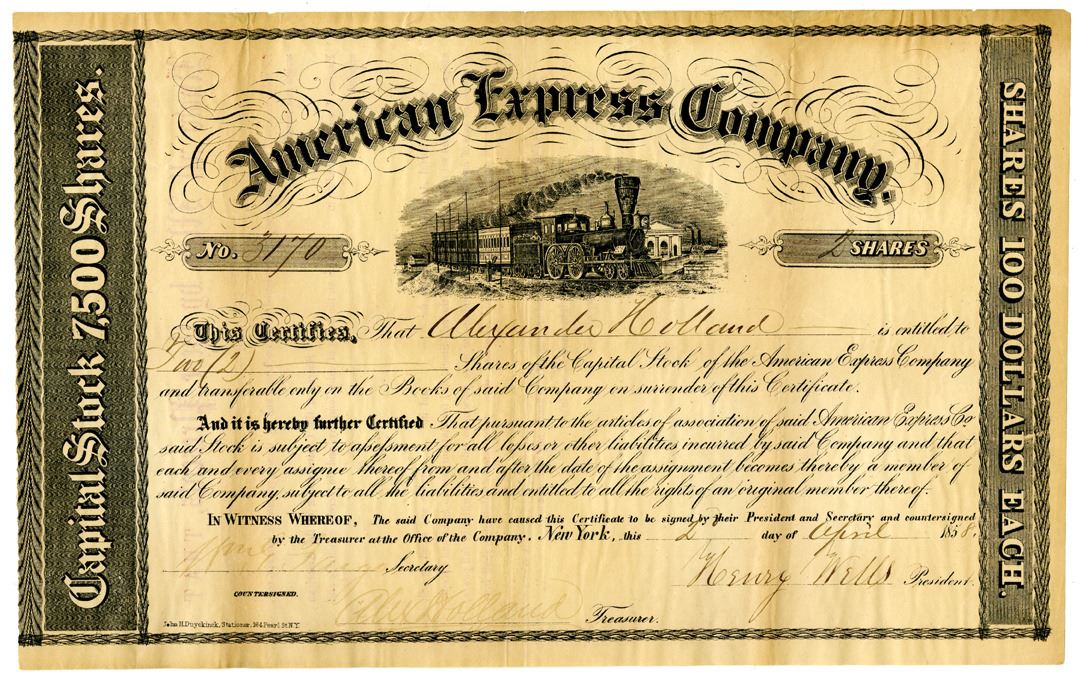 American Express Company.
Capital Stock 7,500 Shares.
SHARES 100 DOLLARS EACH.
No. 3170
2 SHARES
This Certifies, That Alexander Holland is entitled to
Two (2) Shares of the Capital Stock of the American Express Company
and transferable only on the Books of said Company on surrender of this Certificate.
And it is hereby further Certified That pursuant to the articles of association of said American Express Co
said Stock is subject to assessment for all losses or other liabilities incurred by said Company and that
each and every assignee thereof from and after the date of the assignment becomes thereby a member of
said Company, subject to all the liabilities and entitled to all the rights of an original member thereof.
IN WITNESS WHEREOF, The said Company have caused this Certificate to be signed by their President and Secretary and countersigned
by the Treasurer at the Office of the Company. New York, this 2 day of April 1858.
Secretary
Henry Wells President.
COUNTERSIGNED.
Alex Holland Treasurer.
John H. Duyckinck, Stationer, 164 Pearl St. N.Y.